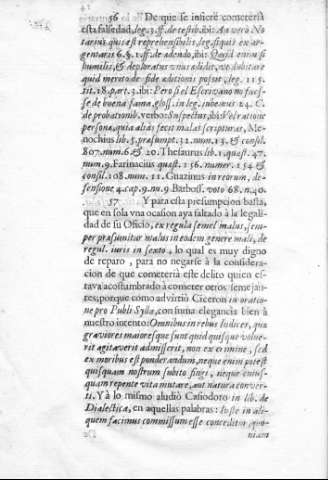 56 De que se infiere cometeria
esta falsedad, leg. 3. ff. de testib. ibi: An vero No
tarius qui est reprehensibilis, leg. si quis ex ar-
gentaris 6. §. 1. ff. de adendo, ibi: Quid enim si
humilis, & deploratus vnus adidit, ne dubitare
quid merito de fide æditionis posset, leg. 115.
tit. 18. part. 3. ibi: Pero si el Escrivano no fues-
se de buena fama, gloss. in leg. iubemus 24. C.
de probationib. verbo: Suspectus, ibi: Vel ratione
personæ, quia aliàs fecit malas scripturas, Me-
nochius lib. 5. præsumpt. 32. num. 13. & consil.
807. num. 6. & 20. Thesaurus lib. 1. quæst. 47.
num. 9. Farinacius quæst. 156. numer. 154 &
consil. 108. num. 11. Guazinus in reorum, de-
fensione 4. cap. 9. nu. 9. Barbos. voto 68. n. 40.
57 Y para esta presumpcion basta,
que en sola vna ocasion aya faltado à la legali-
dad de su Oficio, ex regula semel malus, sem-
per præsumitur malus in eodem genere mali, de
regul. iuris in sexto, lo qual es muy digno
de reparo, para no negarse à la considera-
cion de que cometeria este delito quien es-
tava acostumbrado à cometer otros semejan-
tes; porque como advirtiò Ciceron in oratio-
ne pro Publi Sylla, con suma elegancia bien à
nuestro intento: Omnibus in rebus Iudices, quæ
graviores maioresque sunt quid quisque volue-
rit agitaverit admisserit, non ex crimine, sed
ex moribus est ponderandum, neque enim potest
quisquam nostrum subito fingi, neque cuius-
quam repente vita mutare, aut natura conver-
ti. Y à lo mismo aludiò Casiodoro in lib. de
Dialectica, en aquellas palabras: Iuste in ali-
quem facinus commissum esse conceditur, quo-
niam